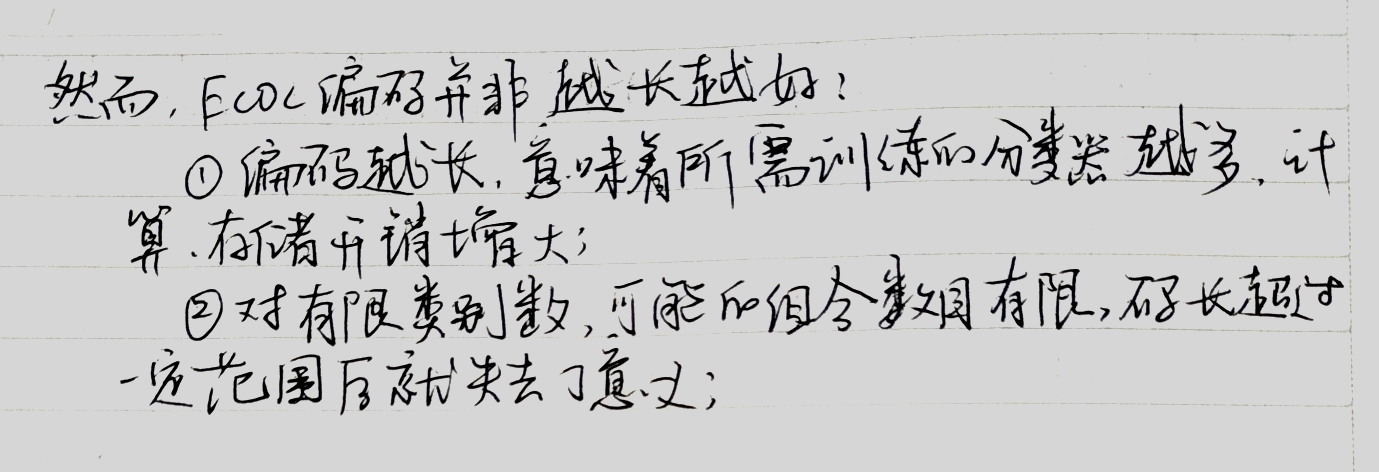 然而,ECOC编码并非越长越好:
①编码越长,意味着所需训练的分类器越多,计
算、存储开销增大;
②对有限类别数,可能的组合数目有限,码长超过
一定范围后就失去了意义;